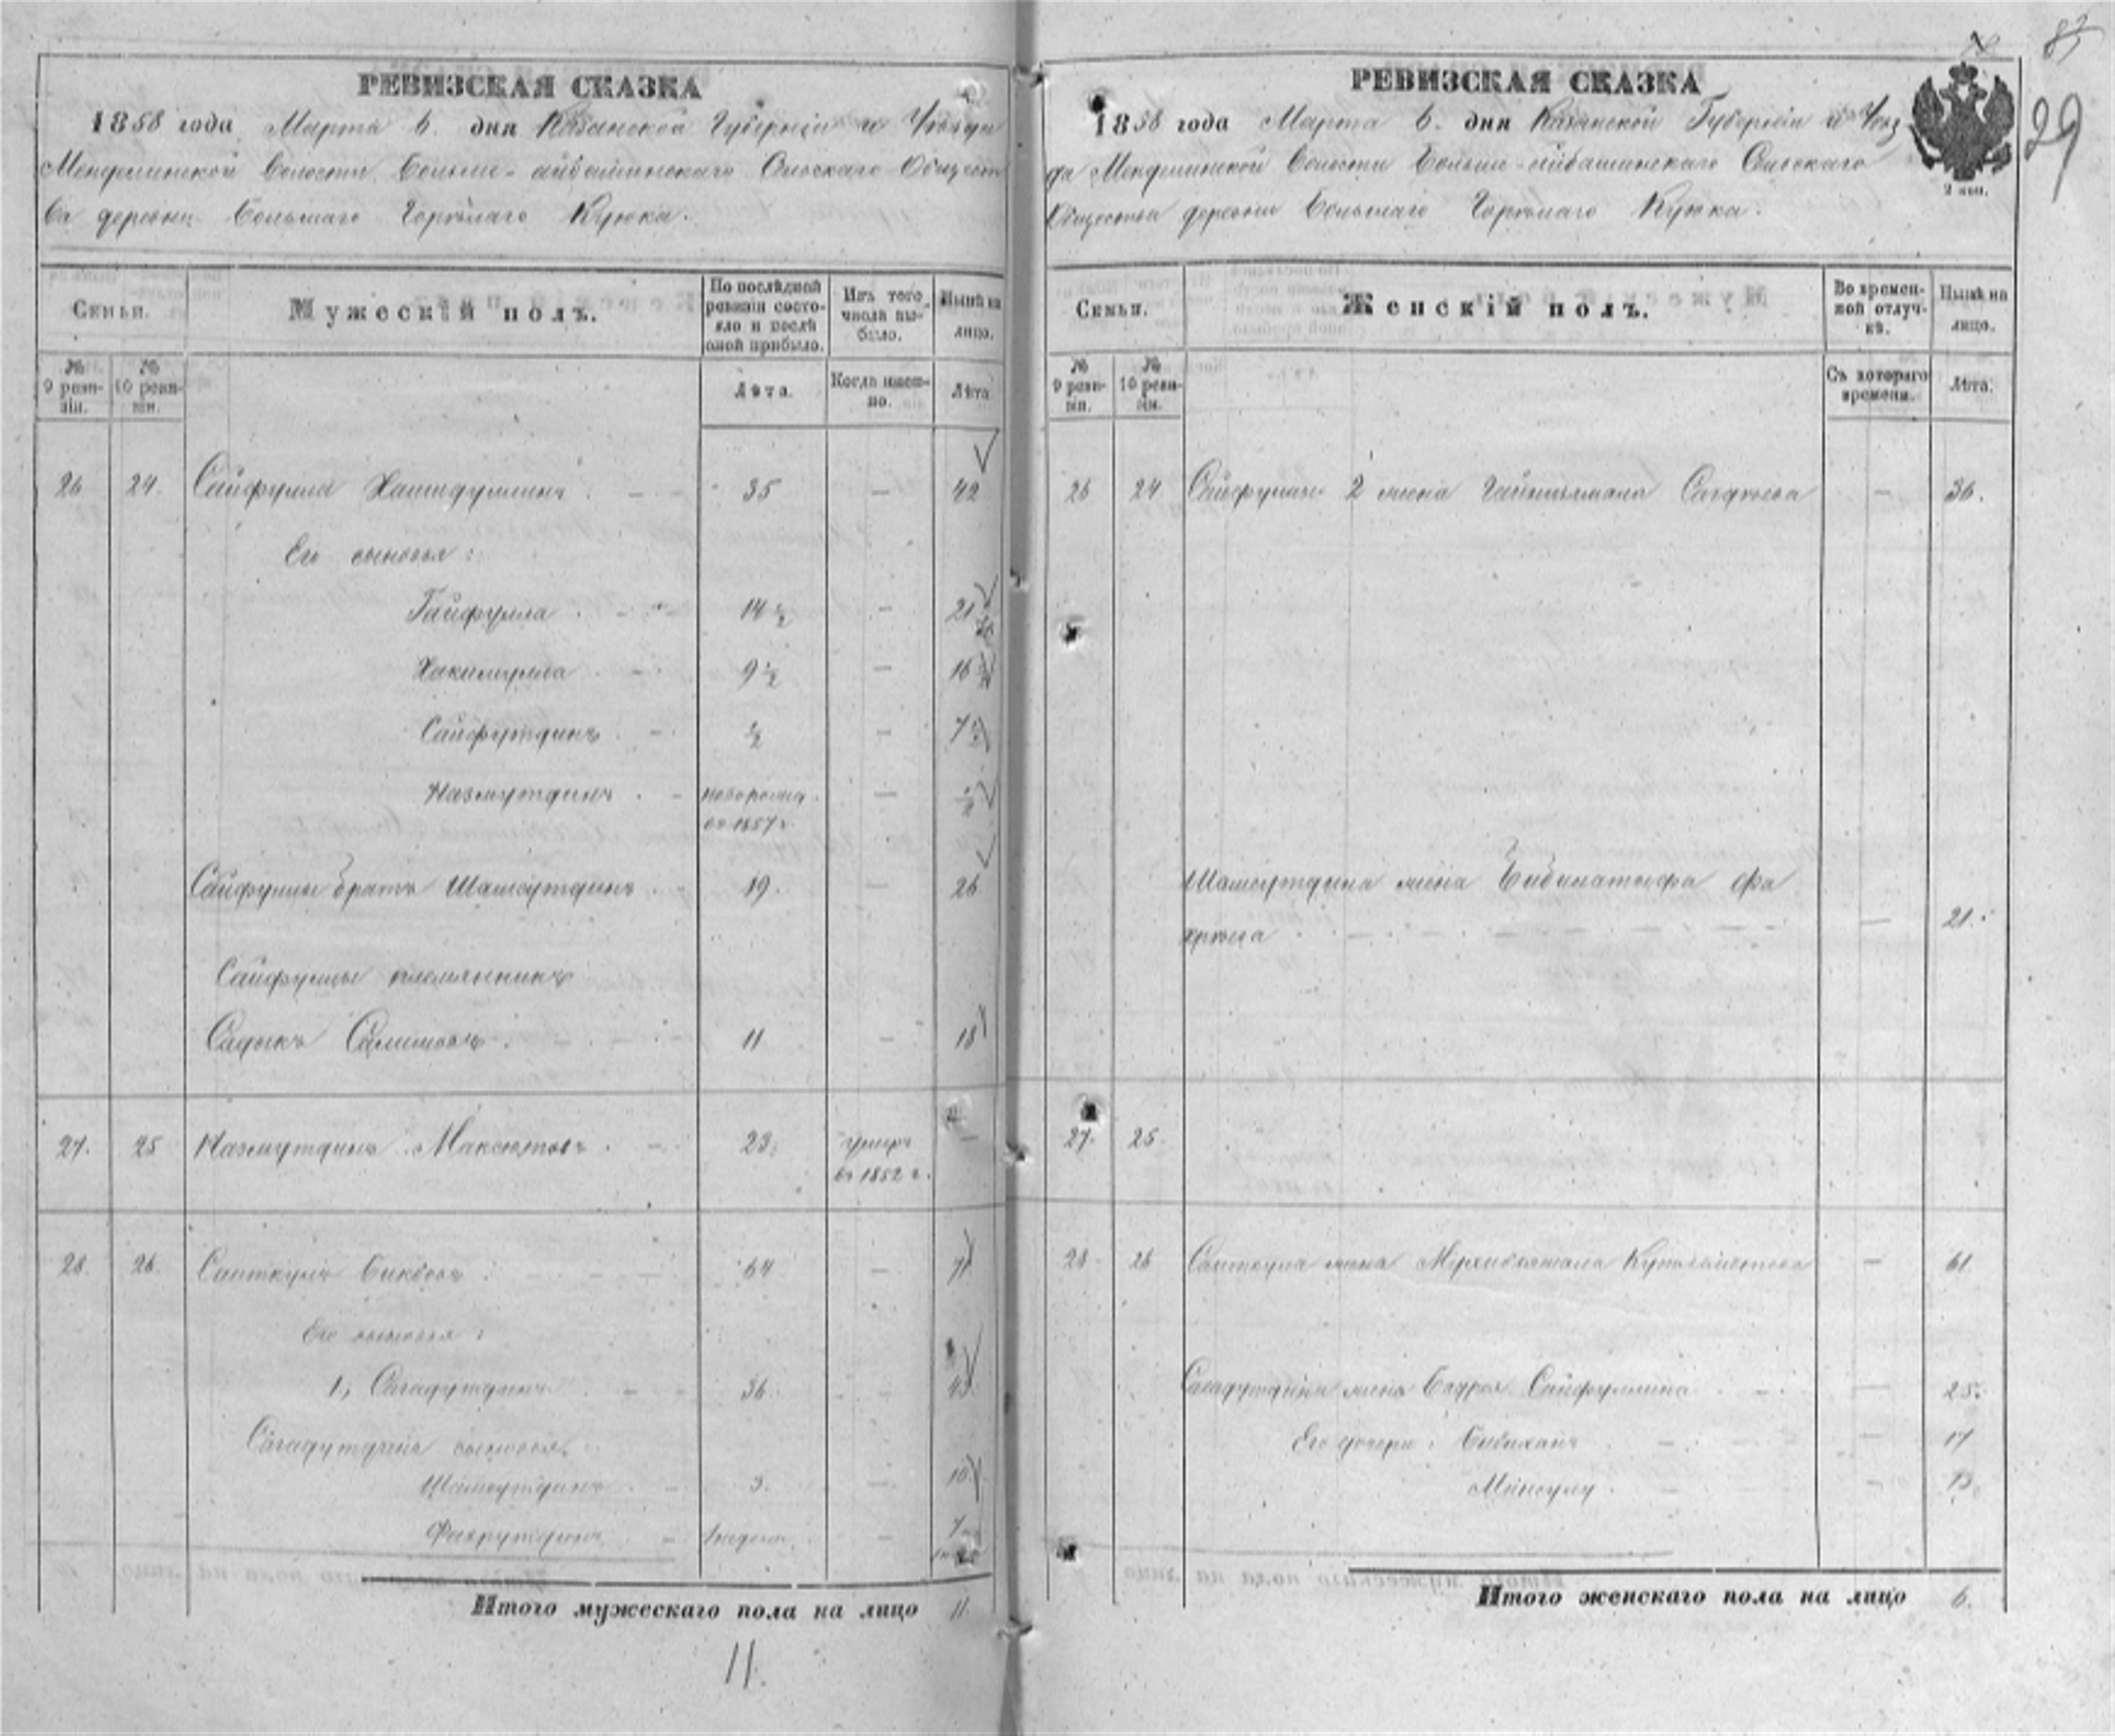 83
29
РЕВИЗСКАЯ СКАЗКА
1858 года Марта 6. дня Казанской Губерніи и Уѣзда
Менделинской Волости Больше-айбашинскаго Сельскаго Общест
ва деревни Большаго Горѣлаго Куюка.
Семьи.
Мужескій полъ.
По послѣдней ревизіи состояло и послѣ оной прибыло.
Изъ того числа выбыло.
Нынѣ на лицо.
№ 9 ревизіи.
№ 10 ревизіи.
Лѣта.
Когда именно.
Лѣта.
26 24. Сайфулла Хамидуллинъ. 35 — 42
Его сыновья:
Гайфулла 14 1/2 — 21 1/2
Хакимулла 9 1/2 — 16 1/2
Сайфутдинъ 1/2 — 7 1/2
Назмутдинъ новорожд. — 1/2
въ 1857 г.
Сайфуллы братъ Шамсутдинъ 19. — 26
Сайфуллы племянникъ
Садыкъ Салимовъ. 11 — 18
27. 25 Назмутдинъ Максютовъ. 23. умеръ —
въ 1852 г.
28. 26. Саиткулъ Бикбовъ 64 — 71
Его сыновья:
1, Сагадутдинъ 36. — 43.
Сагадутдина сыновья.
Шамсутдинъ 3. — 10.
Фахрутдинъ — 7
Итого мужескаго пола на лицо 11.
11.
РЕВИЗСКАЯ СКАЗКА
1858 года Марта 6. дня Казанской Губерніи и Уѣз
да Менделинской Волости Больше-айбашинскаго Сельскаго
Общества деревни Большаго Горѣлаго Куюка.
2 коп.
Семьи.
Женскій полъ.
Во временной отлучкѣ.
Нынѣ на лицо.
№ 9 ревизіи.
№ 10 ревизіи.
Съ котораго времени.
Лѣта.
26 24 Сайфуллы 2 жена Сагдѣева — 36.
Шамсутдина жена Бибилатыфа Фа
хрѣева — 21.
27. 25.
28. 26 Саиткула жена — 61
Сагадутдина жена Бадрея Сайфуллина — 25.
Его дочери: Бибихань — 17
Минсулу — 13.
Итого женскаго пола на лицо 6.